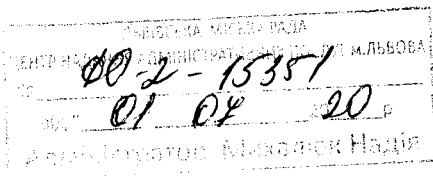 ЛЬВІВСЬКА МІСЬКА РАДА
ЦЕНТР НАДАННЯ АДМІНІСТРАТИВНИХ ПОСЛУГ М.ЛЬВОВА
№ ФО-2-15351
від " 01 04 20 р
Адміністратор Михалюк Надія